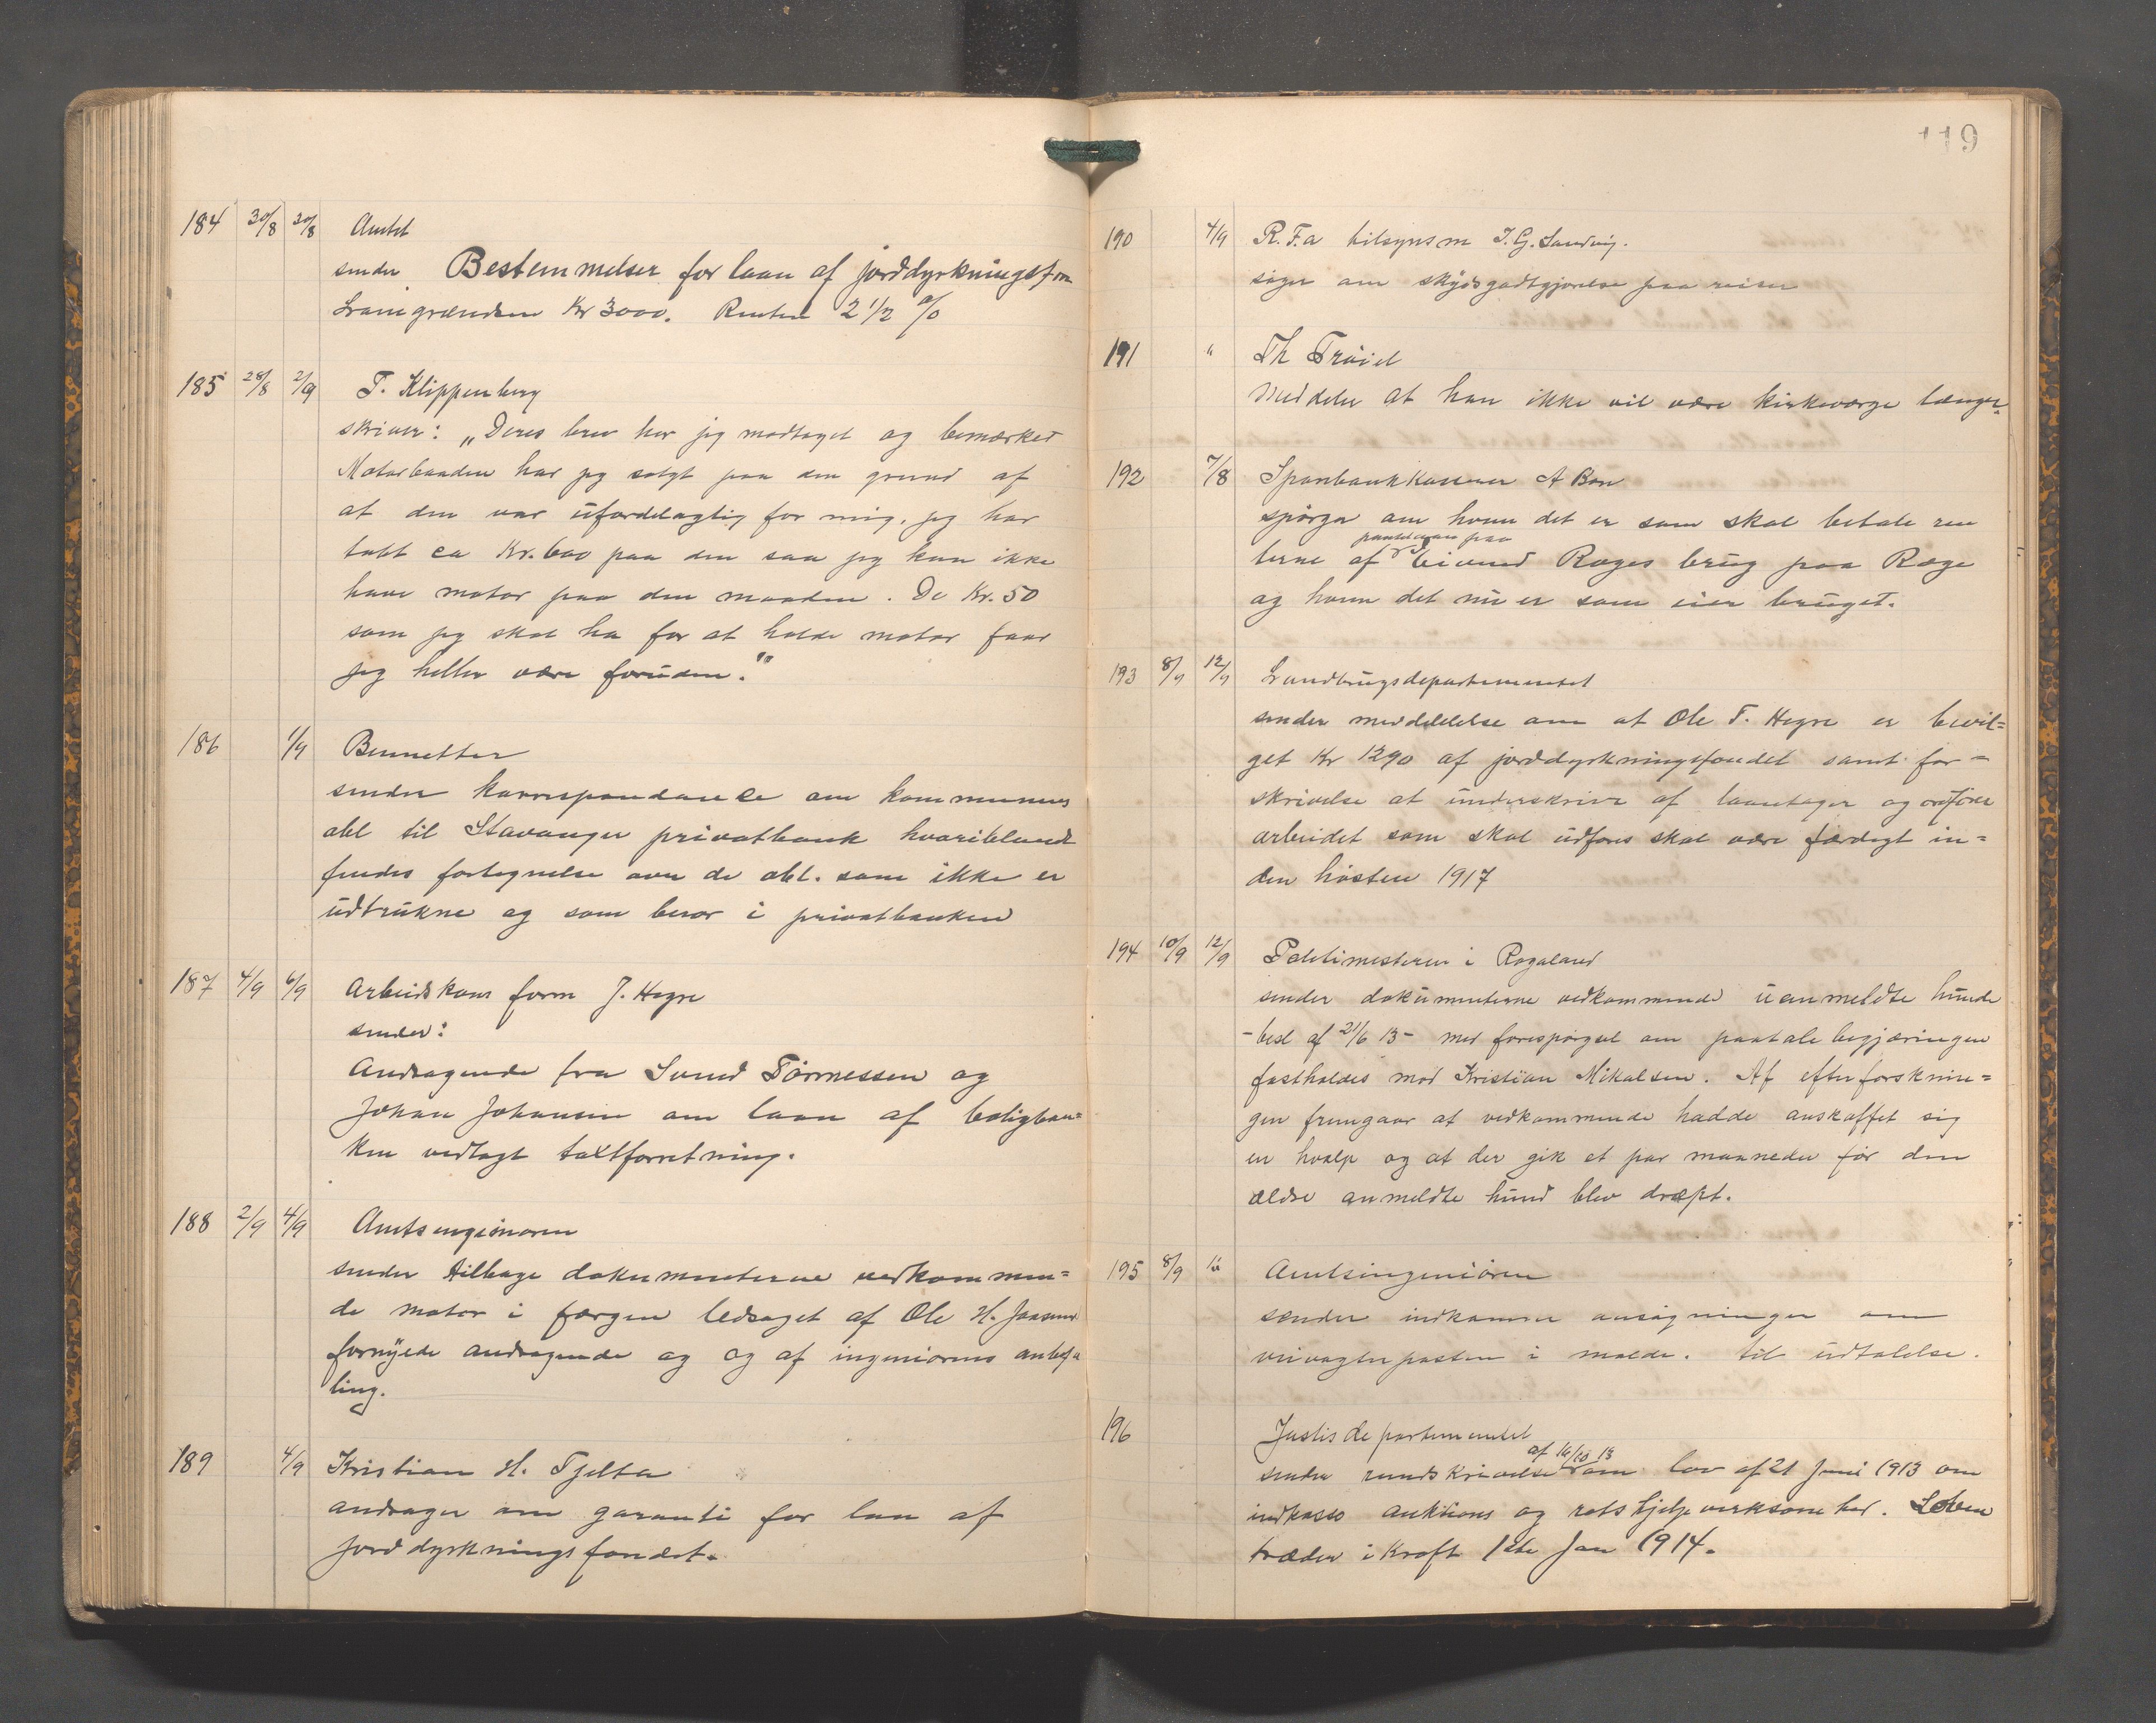 184 30/8 30/8 Amtet
sender Bestemmelser for laan af jorddyrkningsfon
Lånegrændsen Kr 3000. Renten 2 1/2 %
185 28/8 2/9 T. Klippenberg
skriver: „Deres brev har jeg modtaget og bemærket
Motorbaaden har jeg solgt paa den grund af
at den var ufordelagtig for mig, jeg har
tabt ca Kr. 600 paa den saa jeg kan ikke
have motor paa den maaden. De Kr. 50
som jeg skal ha for at holde motor faar
jeg heller være foruden."
186 1/9 Bennetter
sender korrespondance om kommunens
obl til Stavanger privatbank hvoriblandt
findes fortegnelse over de obl. som ikke er
udtrukne og som beror i privatbanken
187 4/9 6/9 Arbeidskom form J. Hegre
sender:
Andragende fra Svend Tönnessen og
Johan Johansen om laan af boligban=
ken vedlagt taxtforretning.
188 2/9 4/9 Amtsingeniøren
sender tilbage dokumenterne vedkommen=
de motor i færgen ledsaget af Ole H. Jaasund
fornyede andragende og og af ingeniørens anbefa
ling.
189 4/9 Kristian H. Tjelta
andrager om garanti for lan af
Jorddyrkningsfondet.
119
190 4/9 R.F.a tilsynsm J. G. Sandvig.
søger om skydsgodtgjørelse paa reiser
191 " Th Tröiel
Meddeler at han ikke vil være kirkeværge længer.
192 7/8 Sparebankkasserer A Bon
spörger om hvem det er som skal betale ren
panteloan paa
terne af Eivind Ræges brug paa Ræge
og hvem det nu er som eier bruget.
193 8/9 12/9 Landbrugsdepartementet
sender meddelelse om at Ole T. Hegre er bevil=
get Kr 1290 af jorddyrkningsfondet samt for=
skrivelse at underskrive af laantager og ordfører
arbeidet som skal udføres skal være færdigt in=
den høsten 1917
194 10/9 12/9 Politimesteren i Rogaland
sender dokumenterne vedkommende uanmeldte hunde
- besl af 21/6 13 - med forespörgsel om paatalebegjæringen
fastholdes mod Kristian Mikalsen. Af efterforsknin=
gen fremgaar at vedkommende hadde anskaffet sig
en hvalp og at der gik et par maaneder før den
ældre anmeldte hund blev dræpt.
195 8/9 " Amtsingeniören
sender indkomne ansøgninger om
veivogterposten i Malde. til udtalelse.
196 Justisdepartementet
af 16/10 13
sender rundskrivelse om lov af 21 Juni 1913 om
indkasso auktions og retshjelpsvirksomhed. Loven
træder i kraft 1ste Jan 1914.